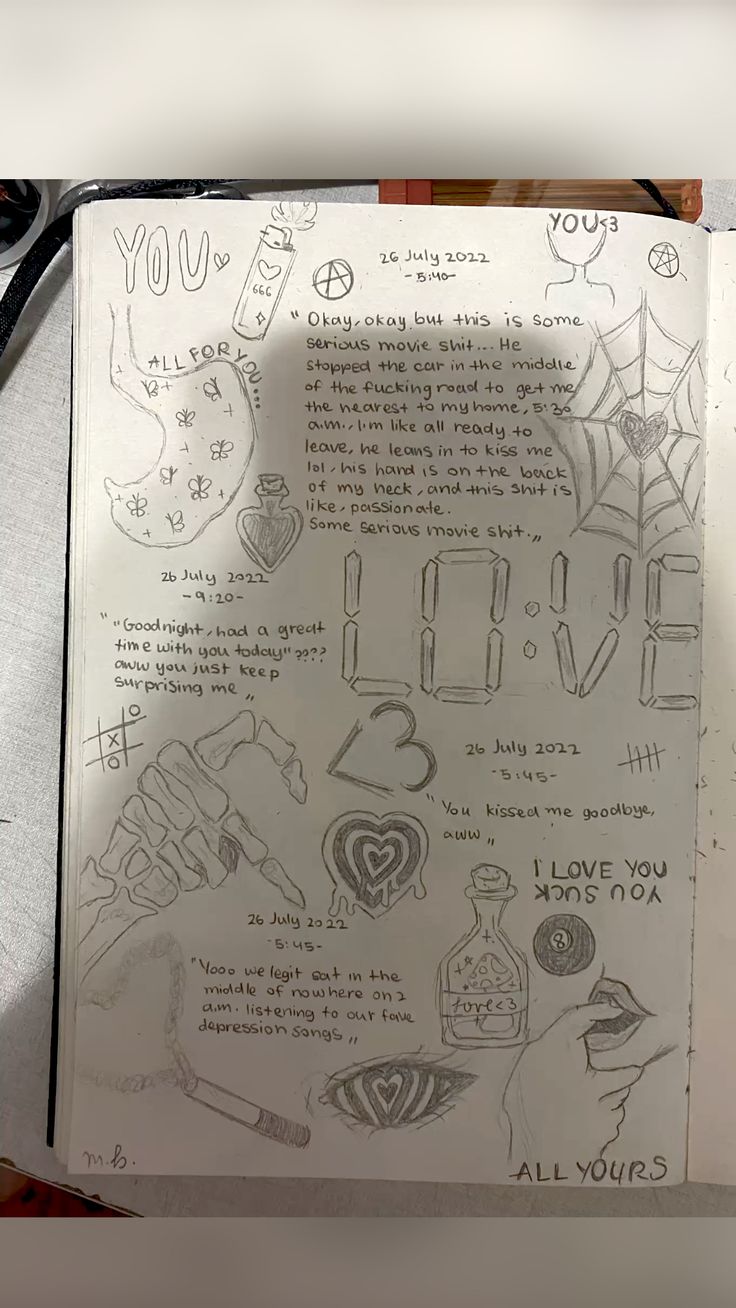 YOU
666
A
26 July 2022
-5:40-
YOU<3
ALL FOR YOU...
" Okay, okay but this is some
serious movie shit... He
stopped the car in the middle
of the fucking road to get me
the nearest to my home, 5:30
a.m., I'm like all ready to
leave, he leans in to kiss me
lol, his hand is on the back
of my neck, and this shit is
like, passionate.
Some serious movie shit. "
26 July 2022
-9:20-
" "Goodnight, had a great
time with you today" ????
aww you just keep
surprising me "
LO:VE
O
X
O
<3
26 July 2022
-5:45-
" You kissed me goodbye,
aww "
I LOVE YOU
YOU SUCK
8
26 July 2022
-5:45-
"Yooo we legit sat in the
middle of nowhere on 2
a.m. listening to our fave
depression songs "
love<3
m.b.
ALL YOURS